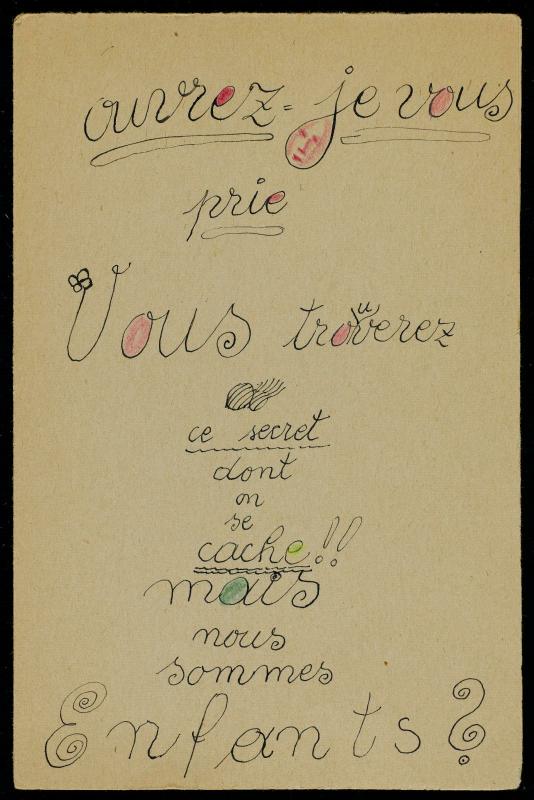 ouvrez-je vous
prie
Vous trouverez
ce secret
dont
on
se
cache!!
mais
nous
sommes
Enfants?